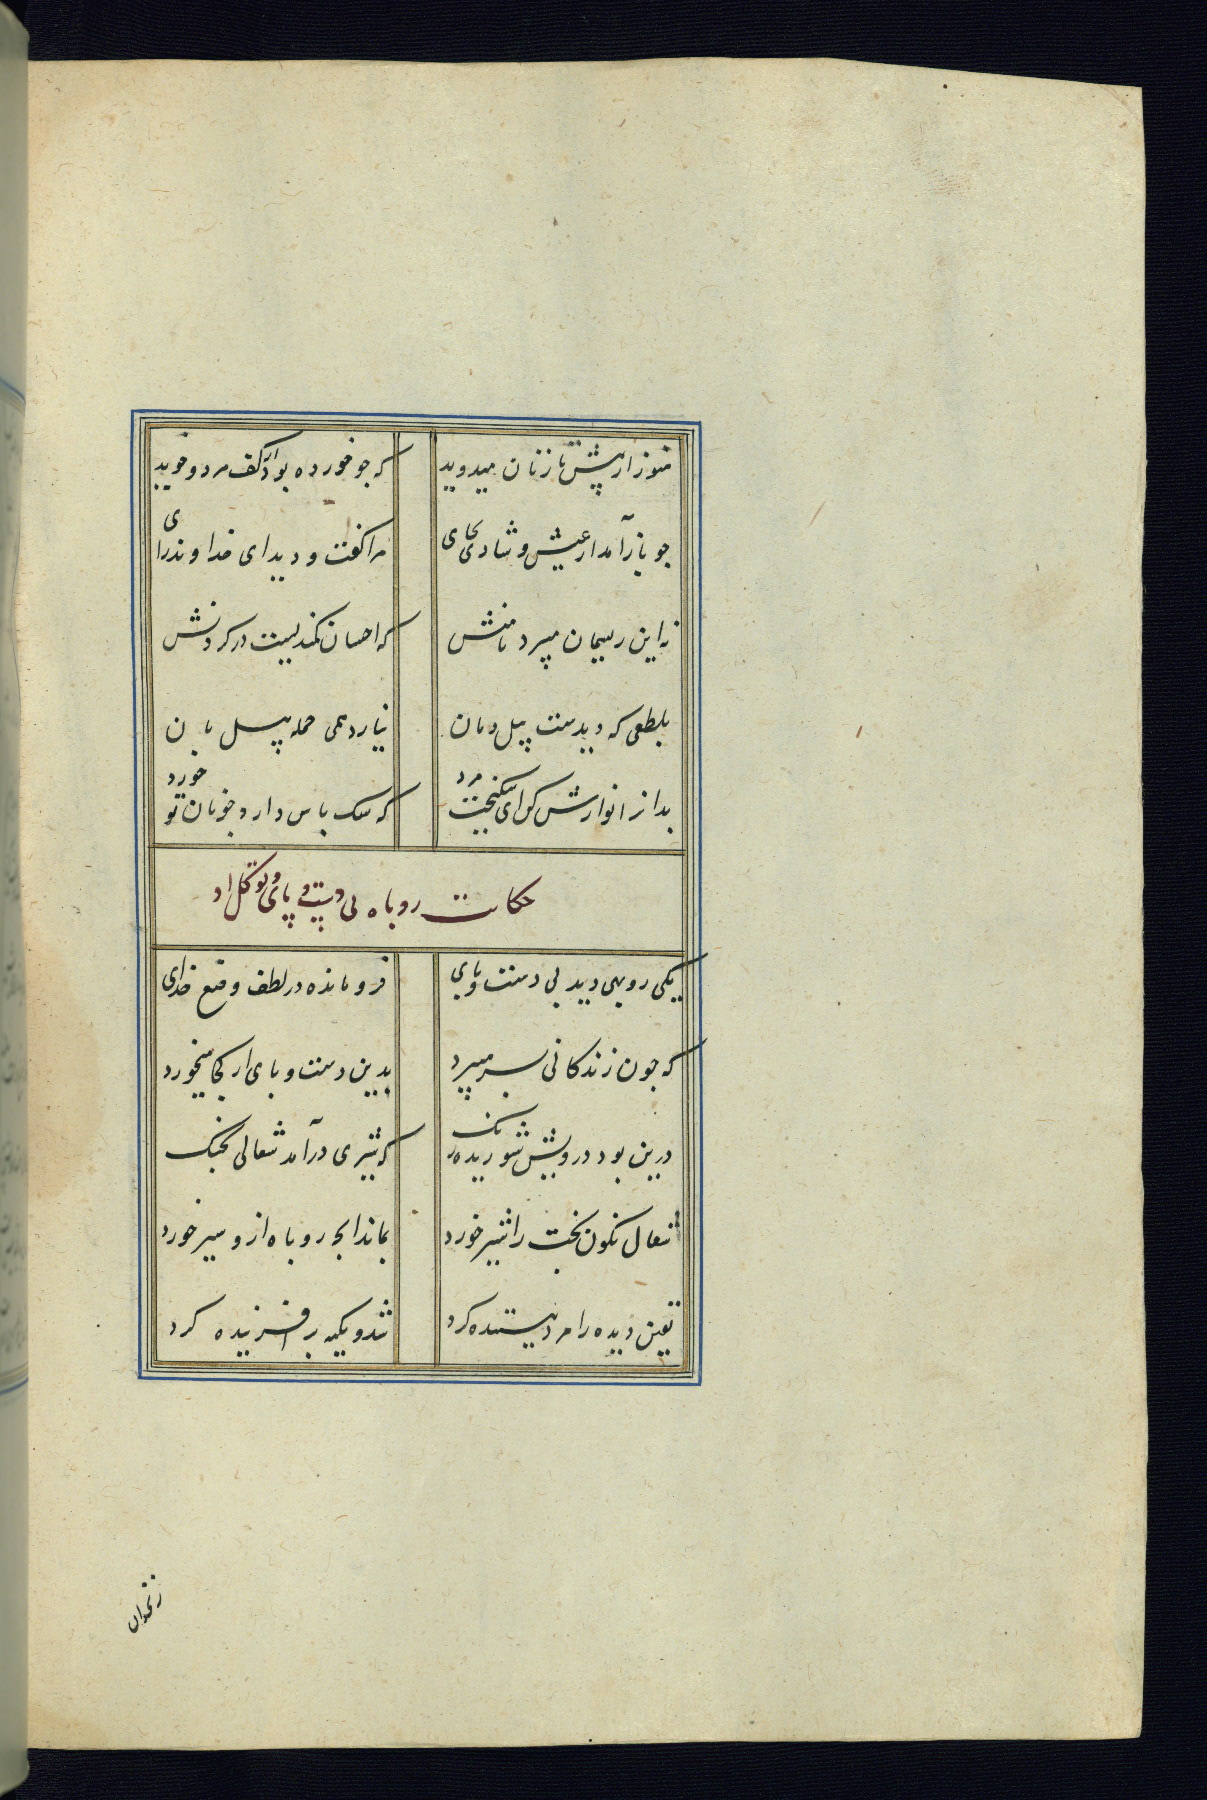 هنوز از پیش تازنان میدوید که جو خورده بود از کف مرد و خوید
جو باز آمد از عیش و شادی بجای مرا گفت و دید ای خداوند رای
نه این ریسمان میبرد با منش که احسان کمندیست در گردنش
بلطفی که دیدست پیل دمان نیارد همی حمله بر پیلبان
بدانرا نوازش کن ای نیکمرد که سک پاس دارد جو نان تو خورد
حکایت روباه بی دست و پای و توکل او
یکی روبهی دید بی دست و پای فرومانده در لطف و صنع خدای
که جون زندکانی بسر میبرد بدین دست و پای از کجا میخورد
درین بود درویش شوریده رنک که شیری درآمد شغالی بجنک
شغال نکون بخت را شیر خورد بماند انجه روباه ازو سیر خورد
یقین دیده را مرد بیننده کرد شد و تکیه بر آفریننده کرد
زنخدان